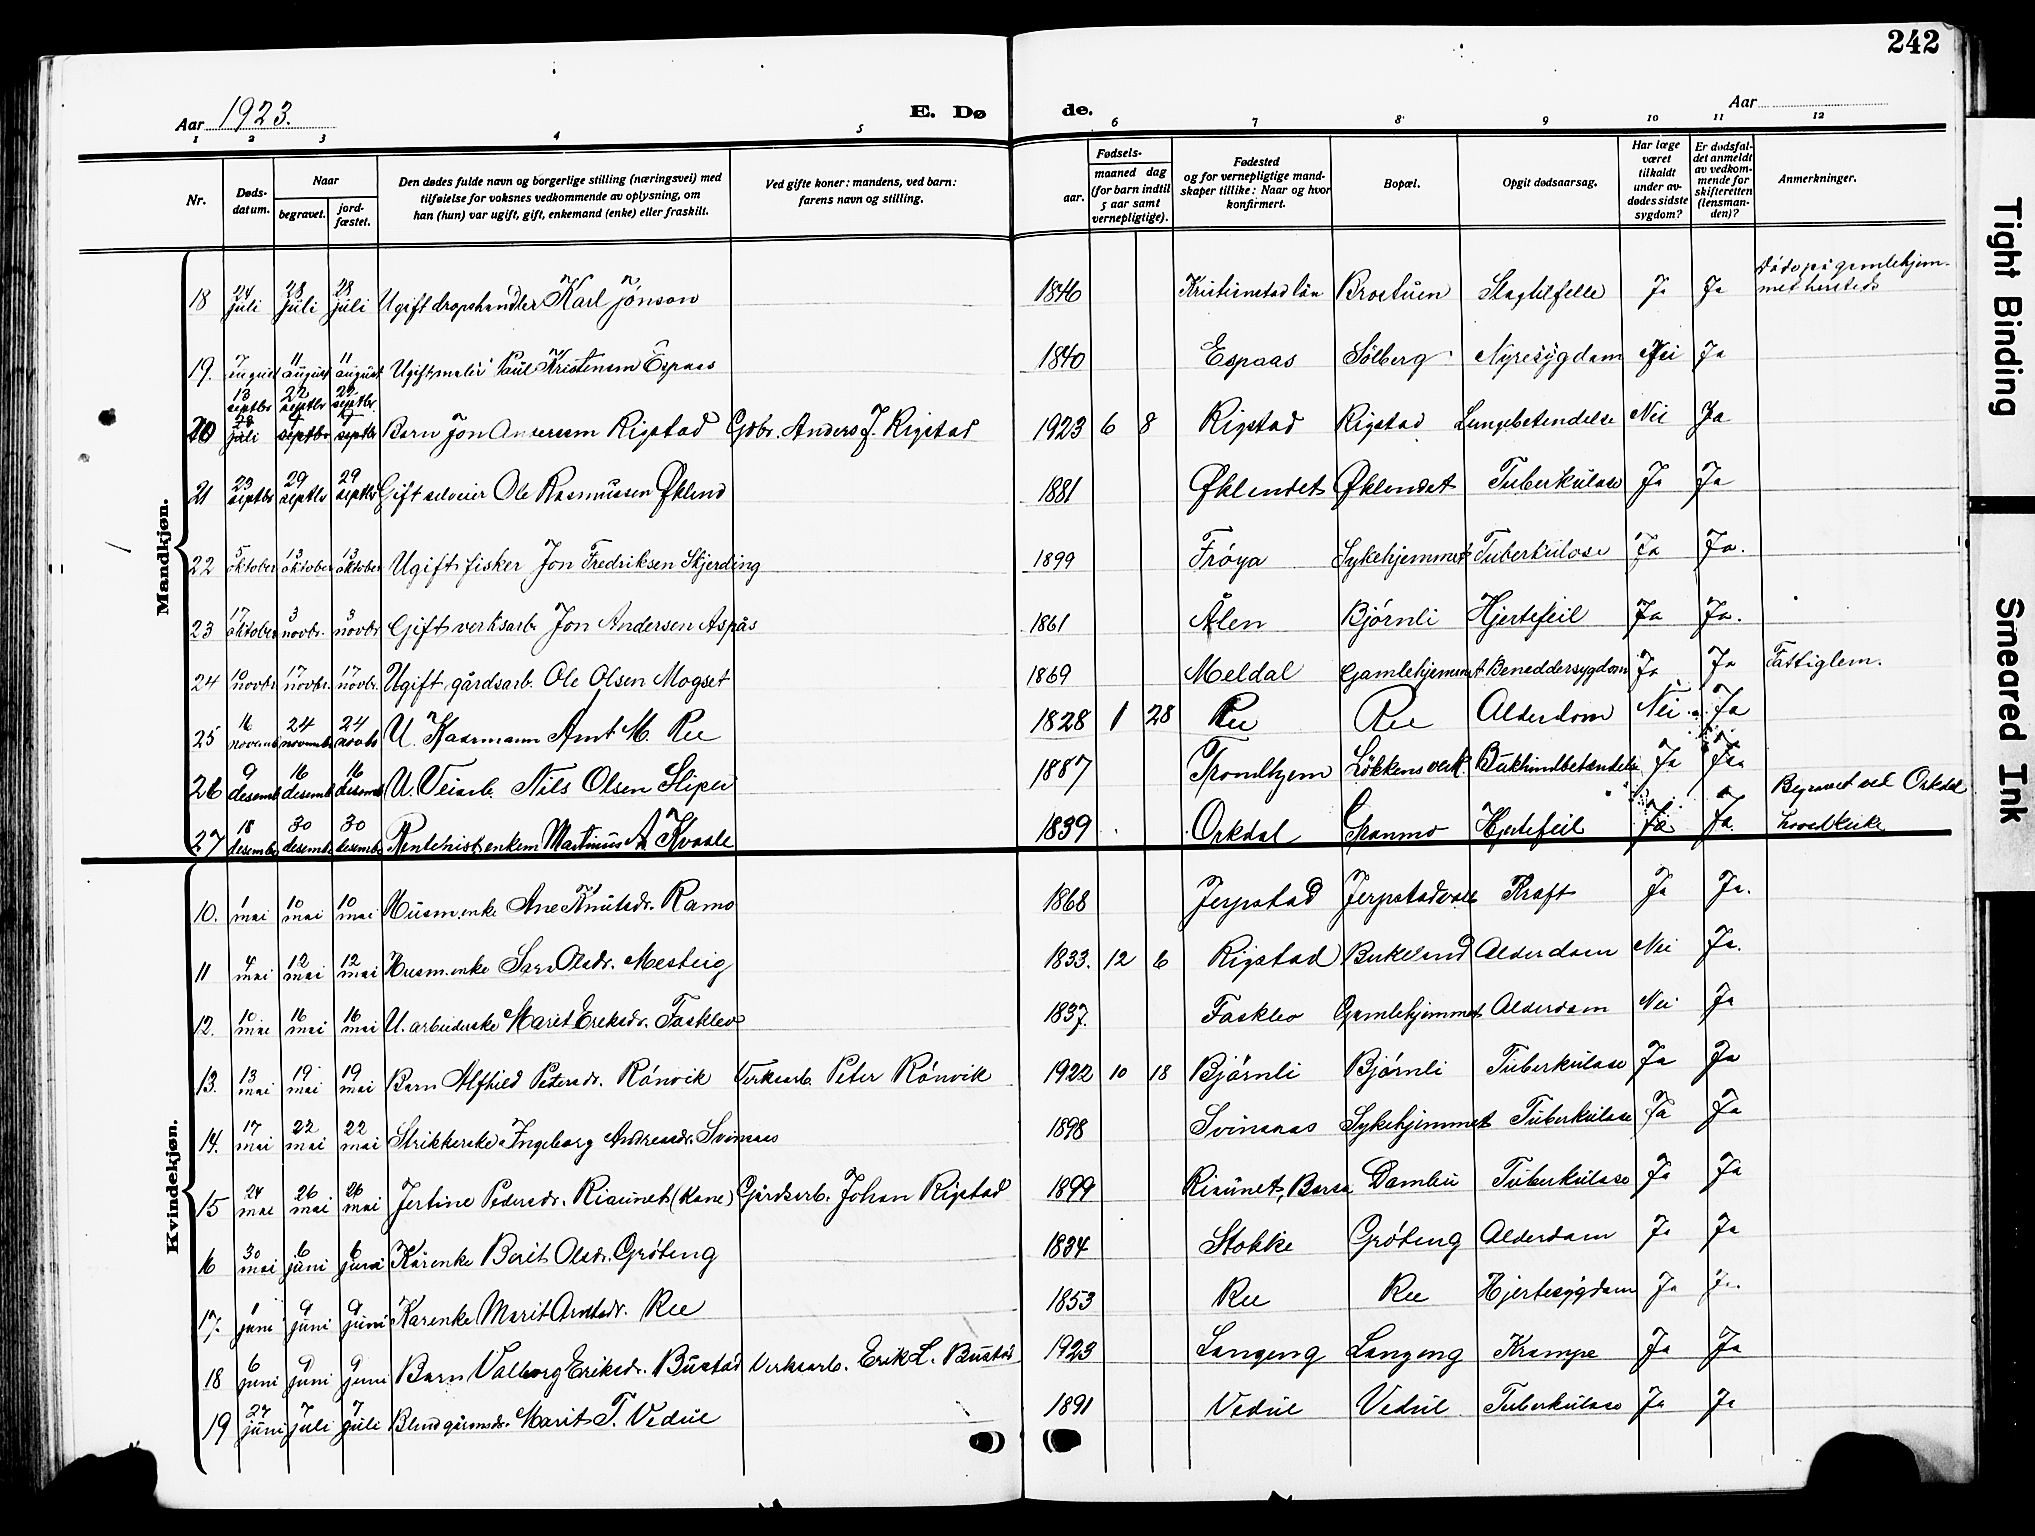 242
Aar 1923.
E. Dø de.
Aar
1 2 3 4 5 6 7 8 9 10 11 12
Nr.
Døds-
datum.
Naar
begravet.
jord-
fæstet.
Den dødes fulde navn og borgerlige stilling (næringsvei) med
tilføielse for voksnes vedkommende av oplysning, om
han (hun) var ugift, gift, enkemand (enke) eller fraskilt.
Ved gifte koner: mandens, ved barn:
farens navn og stilling.
Fødsels-
aar.
maaned dag
(for barn indtil
5 aar samt
vernepligtige).
Fødested
og for vernepligtige mand-
skaper tillike: Naar og hvor
konfirmert.
Bopæl.
Opgit dødsaarsag.
Har læge
været
tilkaldt
under av-
dødes sidste
sygdom?
Er dødsfal-
det anmeldt
av vedkom-
mende for
skifteretten
(lensman-
den)?
Anmerkninger.
Mandkjøn.
18 24 juli 28 juli 28 juli Ugift dropshandler Karl Jonson 1846 Kristianstad län Brostuen Slagtilfelle Ja Ja Døde på gamlehjem-
met hersteds
19. 7 august 11 august 11 august Ugift maler Paul Kristensen Espaas 1840 Espaas Solberg Nyresygdom Nei Ja
13 septbr 22 septbr 22 septbr
20 28 juli 9 septbr 9 septbr Barn Jon Andersen Rigstad Gdbr. Anders J. Rigstad 1923 6 8 Rigstad Rigstad Lungebetendelse Nei Ja
21 23 septbr 29 septbr 29 septbr Gift selveier Ole Rasmussen Øklend 1881 Øklendet Øklendet Tuberkulose Ja Ja
22 5 oktober 13 oktober 13 oktober Ugift fisker Jon Fredriksen Skjerding 1899 Frøya Sykehjemmet Tuberkulose Ja Ja.
23 17 oktober 3 novbr. 3 novbr Gift verksarb. Jon Andersen Aspås 1861 Ålen Bjørnli Hjertefeil Ja Ja.
24 10 novbr 17 novbr. 17 novbr. Ugift gårdsarb. Ole Olsen Mogset 1869 Meldal Gamlehjemmet Beneddersygdom Ja Ja Fattiglem.
25 16 novemb 24 novembr 24 novbr U. Kaarmann Arnt M. Ree 1828 1 28 Ree Ree Alderdom Nei Ja
26 9 desemb 16 desemb 16 desemb U. Veiarb. Nils Olsen Sliper 1887 Trondhjem Løkkens verk Bukhindbetendelse Ja Ja
27 18 desembr 30 desemb 30 desembr Rentenist enkem Martinus A Kvaale 1839 Orkdal Granmo Hjertefeil Ja Ja. Begravet ved Orkdal
hovedkirke
Kvindekjøn.
10. 1 mai 10 mai 10 mai Husm.enke Ane Knutsdr. Ramo 1868 Jerpstad Jerpstadvold Kræft Ja Ja.
11 4 mai 12 mai 12 mai Husm.enke Sara Olsdr. Mesteig 1833. 12 6 Rigstad Birkeland Alderdom Nei Ja.
12. 10 mai 16 mai 16 mai U. arbeiderske Marit Eriksdr. Faskleo 1837. Faskleo Gamlehjemmet Alderdom Nei Ja
13. 13 mai 19 mai 19 mai Barn Alfhild Petersdr. Rønvik Verksarb. Peter Rønvik 1922 10 18 Bjørnli Bjørnli Tuberkulose Ja Ja
14. 17 mai 22 mai 22 mai Strikkerske Ingeborg Andreasdr. Svinaas 1898 Svinaas Sykehjemmet Tuberkulose Ja Ja
15 24 mai 26 mai 26 mai Jertine Pedersdr. Risunet (Kone) Gårdsarb. Johan Rigstad 1899 Risunet, Børsa Dambu Tuberkulose Ja Ja
16 30 mai 6 juni 6 juni Kårenke Berit Olsdr. Grøteng 1834 Stokke Grøteng Alderdom Ja Ja
17. 1 juni 9 juni 9 juni Karenke Marit Arntsdr. Ree 1853 Ree Ree Hjertesygdom Ja Ja
18 6 juni 9 juni 9 juni Barn Valborg Eriksdr. Bustad Verksarb. Erik L. Bustad 1923 Langeng Langeng Krampe Ja Ja
19 27 juni 7 juli 7 juli Marit T. Vedul 1891 Vedul Vedul Tuberkulose Ja Ja
Tight Binding
Smeared Ink